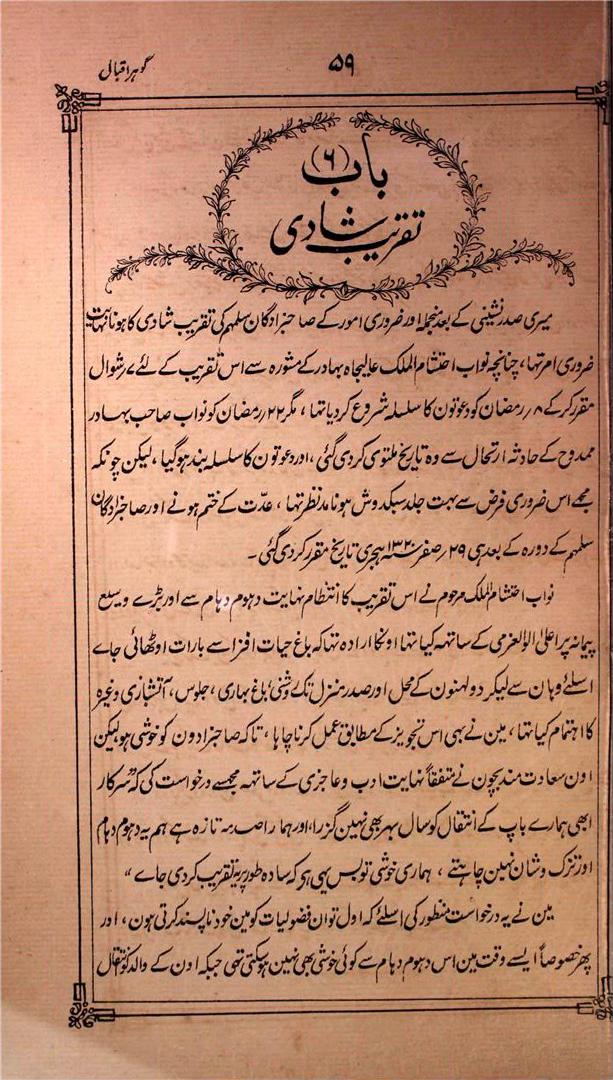 گوہر اقبالی
۵۹
باب (۶)
تقریب شادی
میری صدر نشینی کے بعد منجملہ اور ضروری امور کے صاحبزادگان سلمہم کی تقریب شادی کا ہونا نہایت
ضروری امر تہا، چنانچہ نواب احتشام الملک عالیجاہ بہادر کے مشورہ سے اس تقریب کے لئے ۷ر شوال
مقرر کر کے ۸ر رمضان کو دعوتون کا سلسلہ شروع کر دیا تہا، مگر ۲۲ر رمضان کو نواب صاحب بہادر
ممدوح کے حادثہ ارتحال سے وہ تاریخ ملتوی کر دی گئی، اور دعوتون کا سلسلہ بند ہوگیا، لیکن چونکہ
مجہے اس ضروری فرض سے بہت جلد سبکدوش ہونا مدنظر تہا، عدّت کے ختم ہونے اور صاحبزادگان
سلمہم کے دورہ کے بعد ہی ۲۹ر صفر سنہ ۱۳۲۰ ہجری تاریخ مقرر کر دی گئی۔
نواب احتشام الملک مرحوم نے اس تقریب کا انتظام نہایت دہوم دہام سے اور بڑے وسیع
پیمانہ پر اعلیٰ اولوالعزمی کے ساتہہ کیا تہا اونکا ارادہ تہا کہ باغ حیات افزا سے بارات اوٹھائی جاے
اسلئے وہان سے لیکر دولہنون کے محل اور صدر منزل تک روشنی، باغ بہاری، جلوس، آتشبازی وغیرہ
کا اہتمام کیا تہا، مین نے بہی اس تجویز کے مطابق عمل کرنا چاہا، تاکہ صاحبزادون کو خوشی ہو لیکن
اون سعادت مند بچون نے متفقاً نہایت ادب و عاجزی کے ساتہہ مجہسے درخواست کی کہ "سرکار
ابھی ہمارے باپ کے انتقال کو سال بہر بھی نہین گزرا، اور ہمارا صدمہ تازہ ہے ہم یہ دہوم دہام
اور تزک و شان نہین چاہتے، ہماری خوشی تو بس یہی ہو کہ سادہ طور پر یہ تقریب کر دی جاے"
مین نے یہ درخواست منظور کی اسلئے کہ اول تو ان فضولیات کو مین خود ناپسند کرتی ہون، اور
پھر خصوصاً ایسے وقت مین اس دہوم دہام سے کوئی خوشی بھی نہین ہوسکتی تھی جبکہ اون کے والد کو انتقال